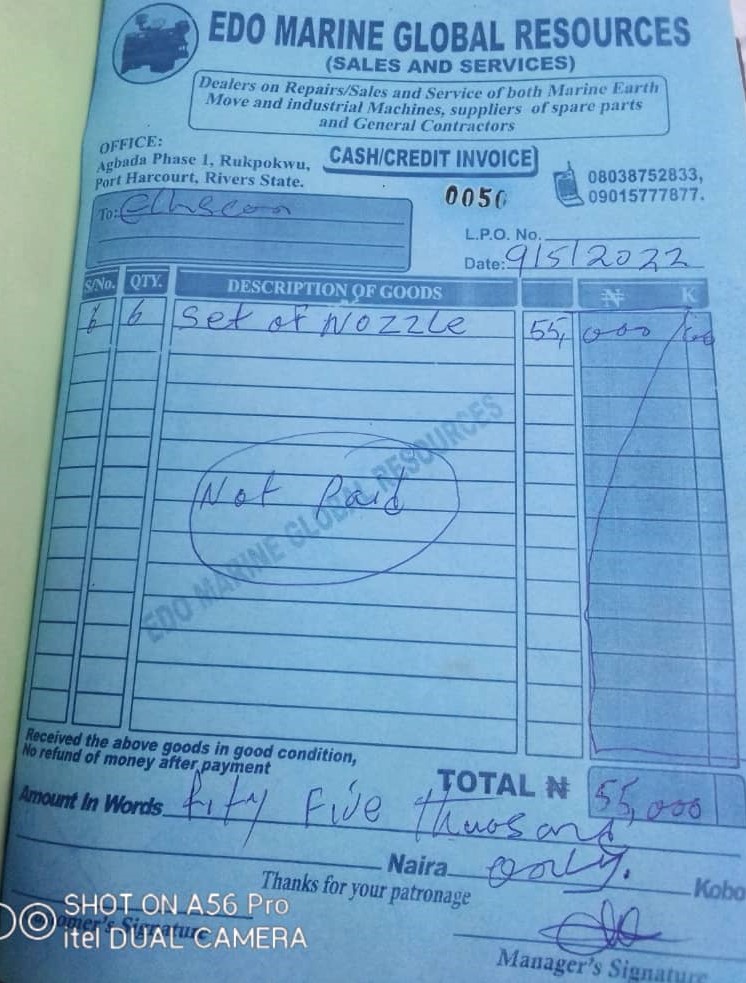 EDO MARINE GLOBAL RESOURCES
(SALES AND SERVICES)
Dealers on Repairs/Sales and Service of both Marine Earth
Move and industrial Machines, suppliers of spare parts
and General Contractors
OFFICE:
Agbada Phase 1, Rukpokwu,
Port Harcourt, Rivers State.
CASH/CREDIT INVOICE
0050
08038752833,
09015777877.
To:
L.P.O. No.
Date: 9/5/2022
S/No. QTY. DESCRIPTION OF GOODS ₦ K
6 6 Set of Nozzle 55,000/00
Not Paid
EDO MARINE GLOBAL RESOURCES
Received the above goods in good condition,
No refund of money after payment
TOTAL ₦ 55,000
Amount In Words Fify Five thuosand
Naira only. Kobo
Thanks for your patronage
Customer's Signature
Manager's Signature
SHOT ON A56 Pro
itel DUAL CAMERA